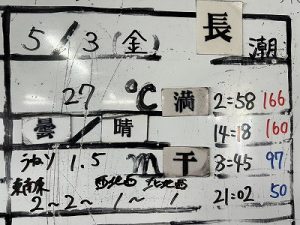 5/3(金) 長潮
27℃ 満 2:58 166
曇/晴 14:18 160
うねり 1.5m 干 8:45 97
東南東 西北西 北北西 21:02 50
2~2~1~1